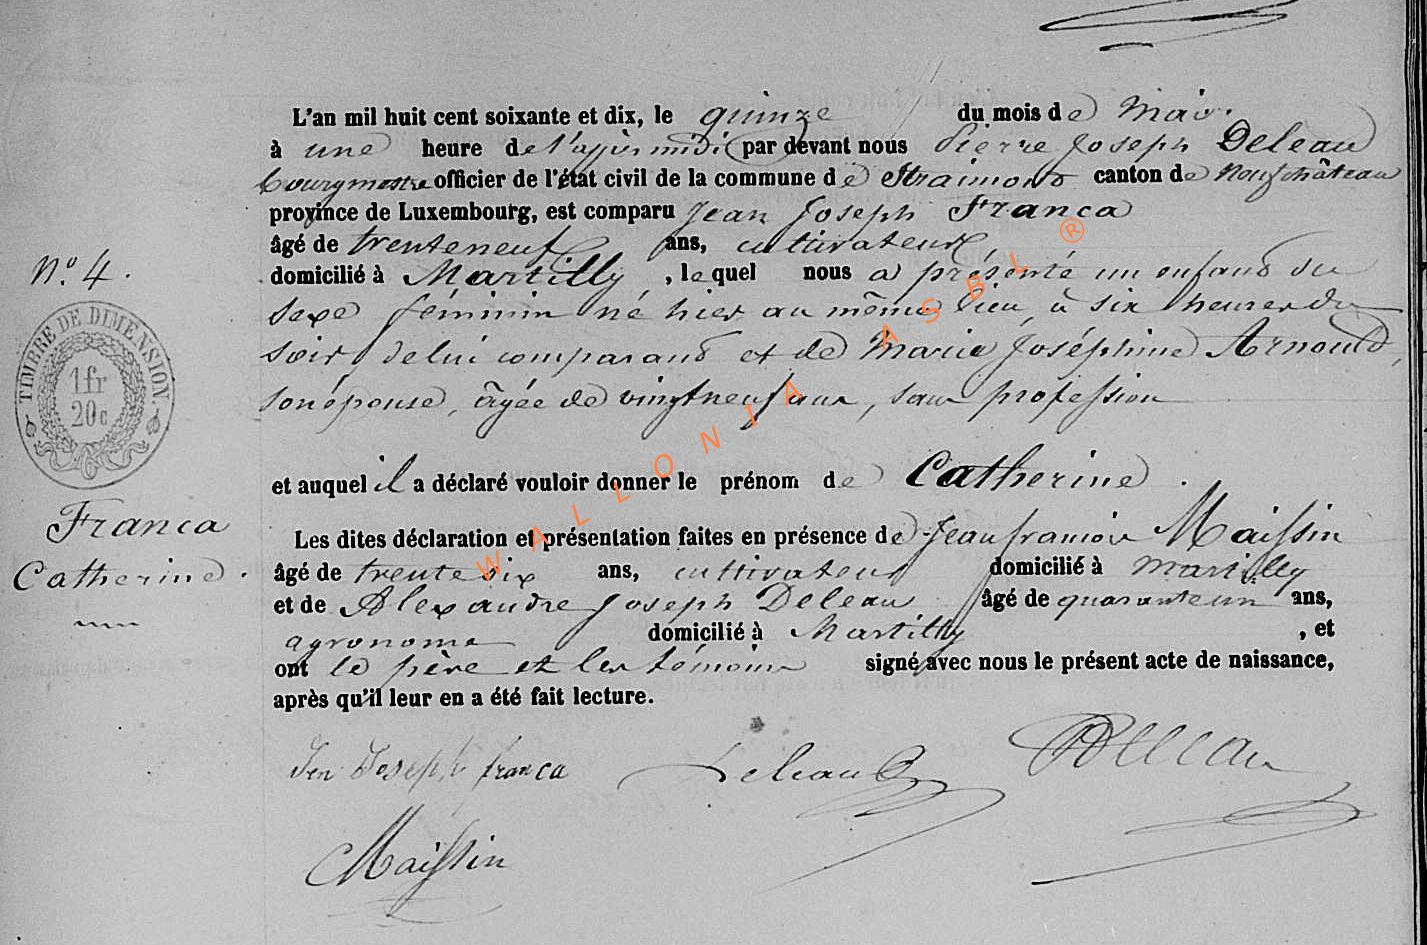 L'an mil huit cent soixante et dix, le quinze du mois de Mai.
à une heure de l'après midi par devant nous Pierre Joseph Deleau
bourgmestre officier de l'état civil de la commune de Straimont canton de Neufchâteau
province de Luxembourg, est comparu Jean Joseph Franca
âgé de trenteneuf ans, cultivateur,
domicilié à Martilly, lequel nous a présenté un enfant du
sexe féminin né hier au même lieu, à six heures du
soir, de lui comparant et de Marie Joséphine Arnould,
son épouse, âgée de vingtneuf ans, sans profession
et auquel il a déclaré vouloir donner le prénom de Catherine.
Les dites déclaration et présentation faites en présence de Jean françois Maissin
âgé de trente six ans, cultivateur domicilié à Martilly
et de Alexandre Joseph Deleau, âgé de quarante un ans,
agronome domicilié à Martilly, et
ont le père et les témoins signé avec nous le présent acte de naissance,
après qu'il leur en a été fait lecture.
Jen Joseph franca Deleau PDeleau
Maissin
No. 4.
TIMBRE DE DIMENSION.
1 fr
20 c
6
Franca
Catherine.
WALLONIA ASBL ®